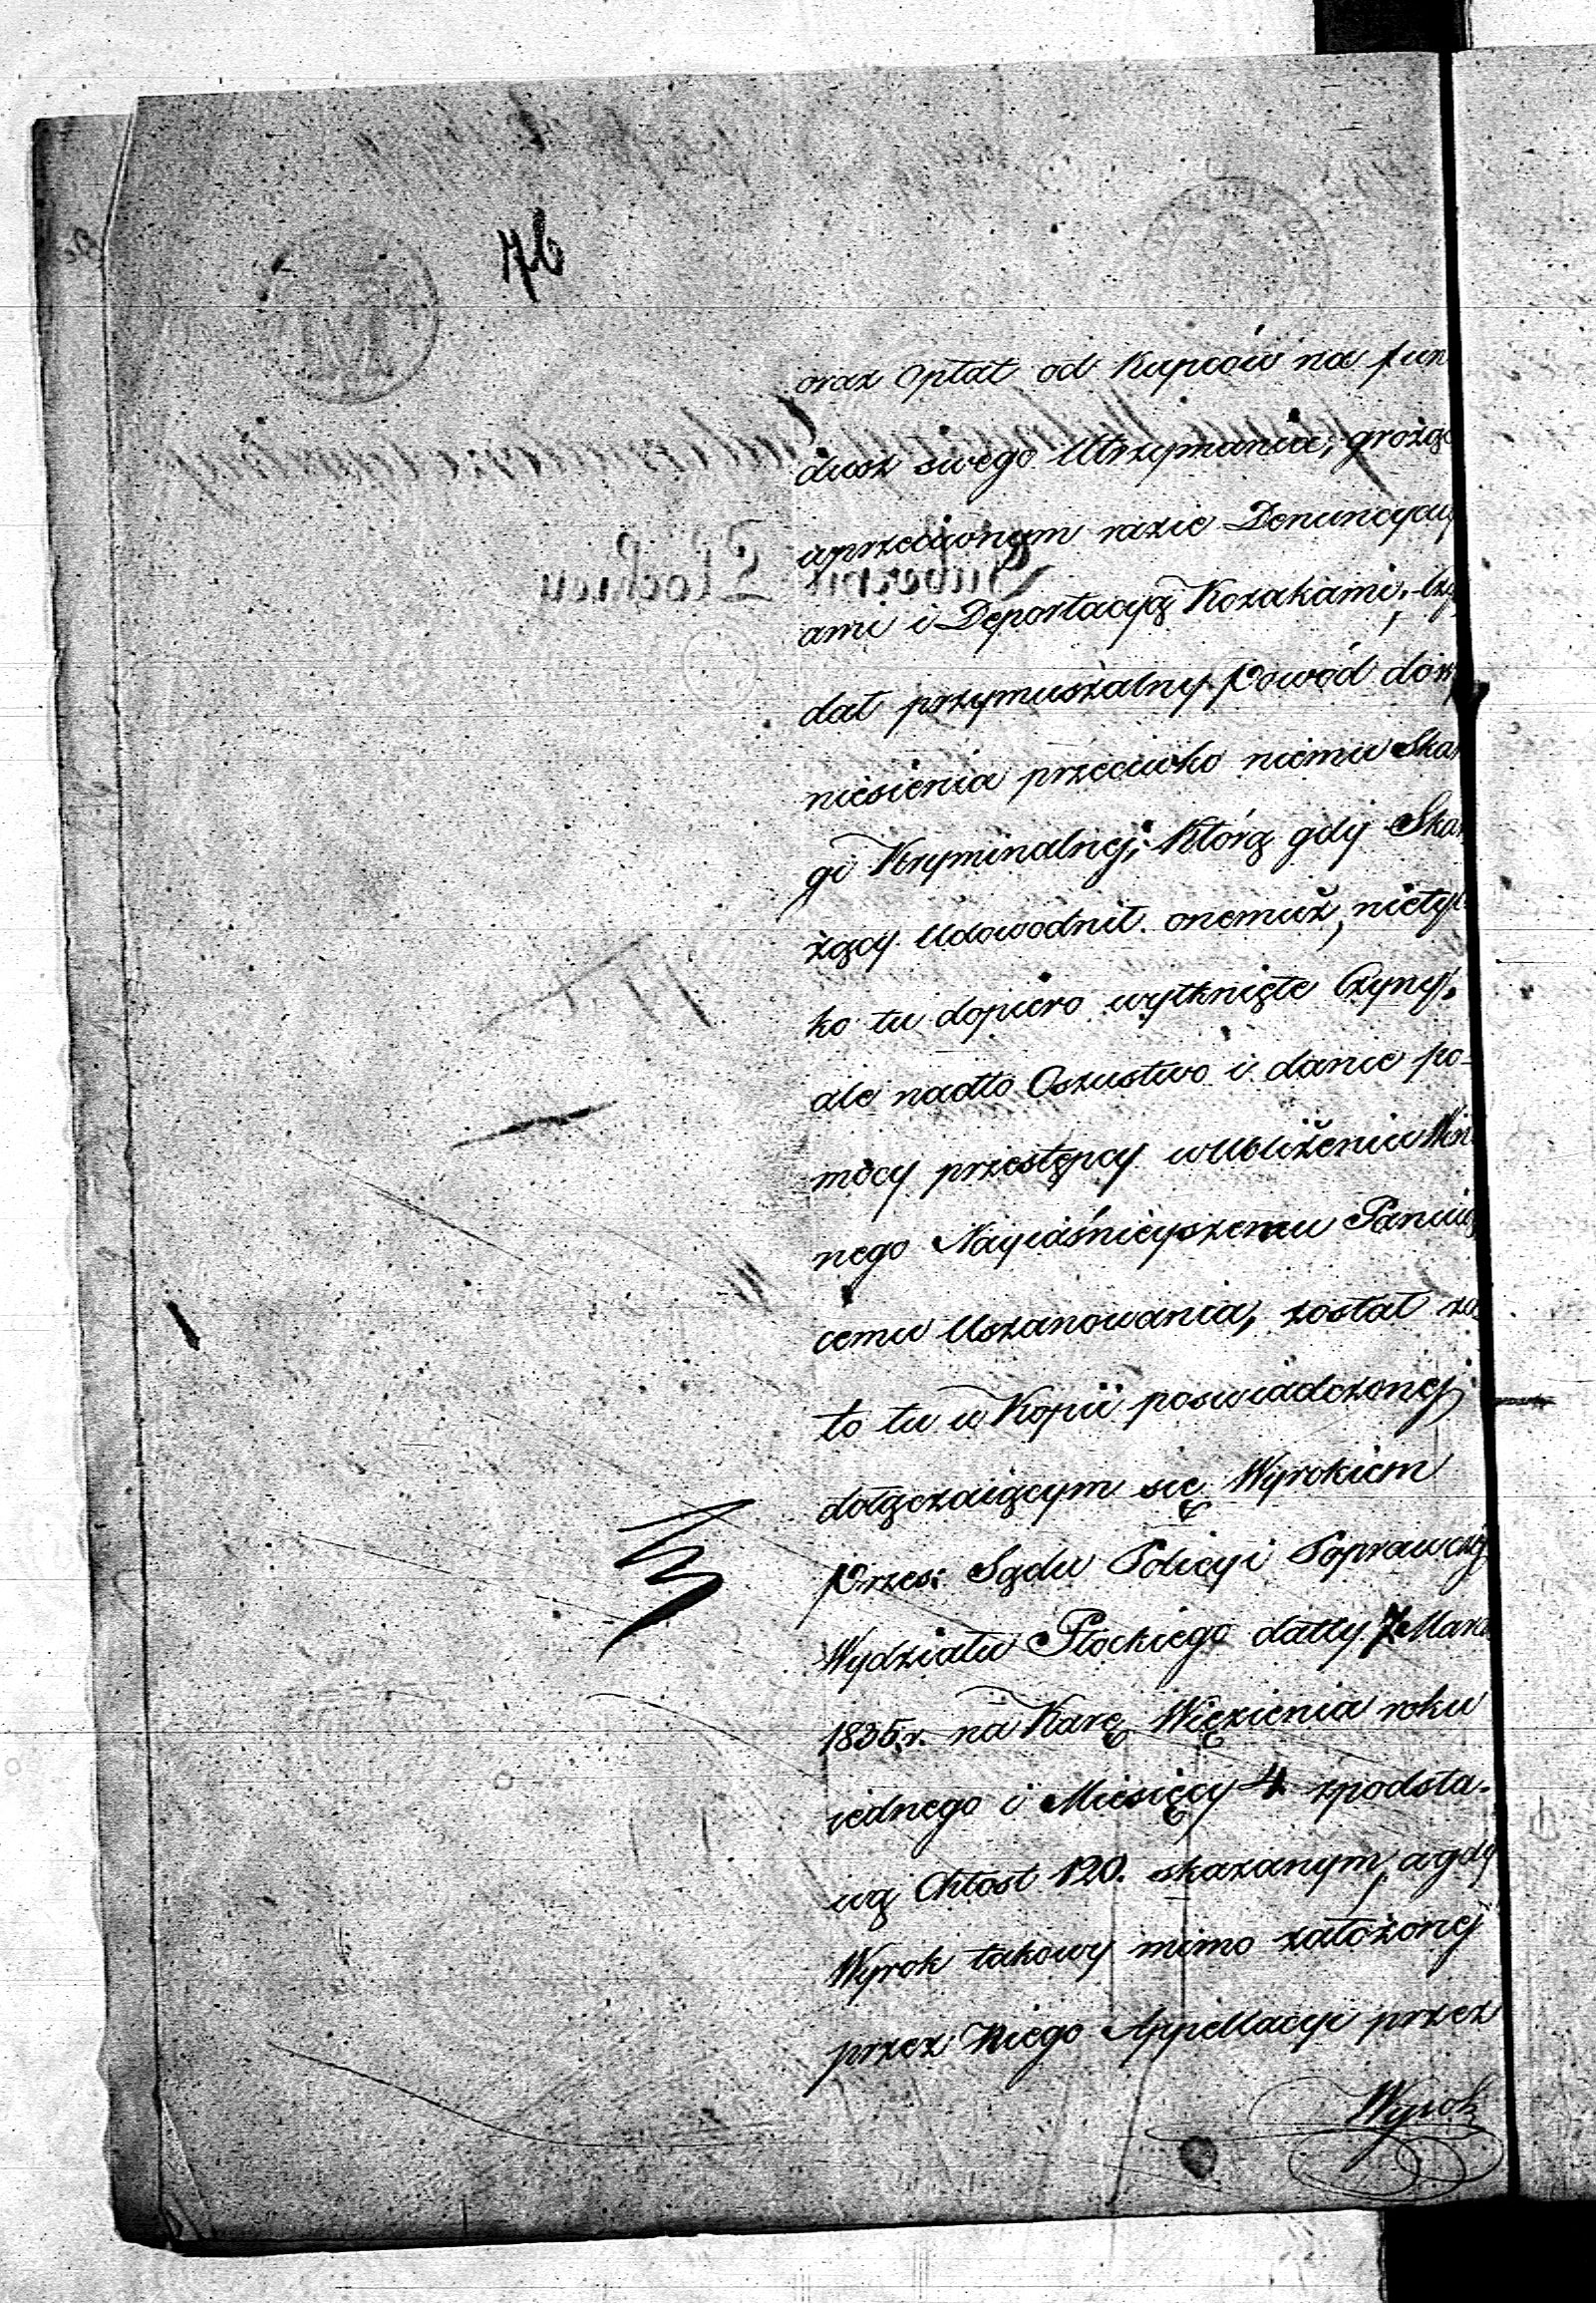 76
oraz Opłat od Kupców na fun
dusz swego Utrzymania, grożąc
wprzeciwnym razie Denuncyacy
ami i Deportacyą Kozakami,
dał przymuszalny Powód do
niesienia przeciwko niemu Skar
gi Kryminalnej; Którą gdy Skar
żący Udowodnił onemuż, nietyl
ko tu dopiero wytknięte Czyny,
ale nadto Oszustwo i danie po-
mocy przestępcy w Ubliżeniu Win
nego Nayiaśnieyszemu Panuią
cemu Uszanowania, został za
to tu w Kopii poswiadczonej
dołączaiącym się Wyrokiem
Przes: Sądu Policyi Poprawczej
Wydziału Płockiego datty 7 Marca
1835 r. na Karę Więzienia roku
iednego i Miesięcy 4 zpodsta-
wą Chłost 120. skazanym, a gdy
Wyrok takowy mimo założonej
przez Niego Appellacyi przez
Wyrok